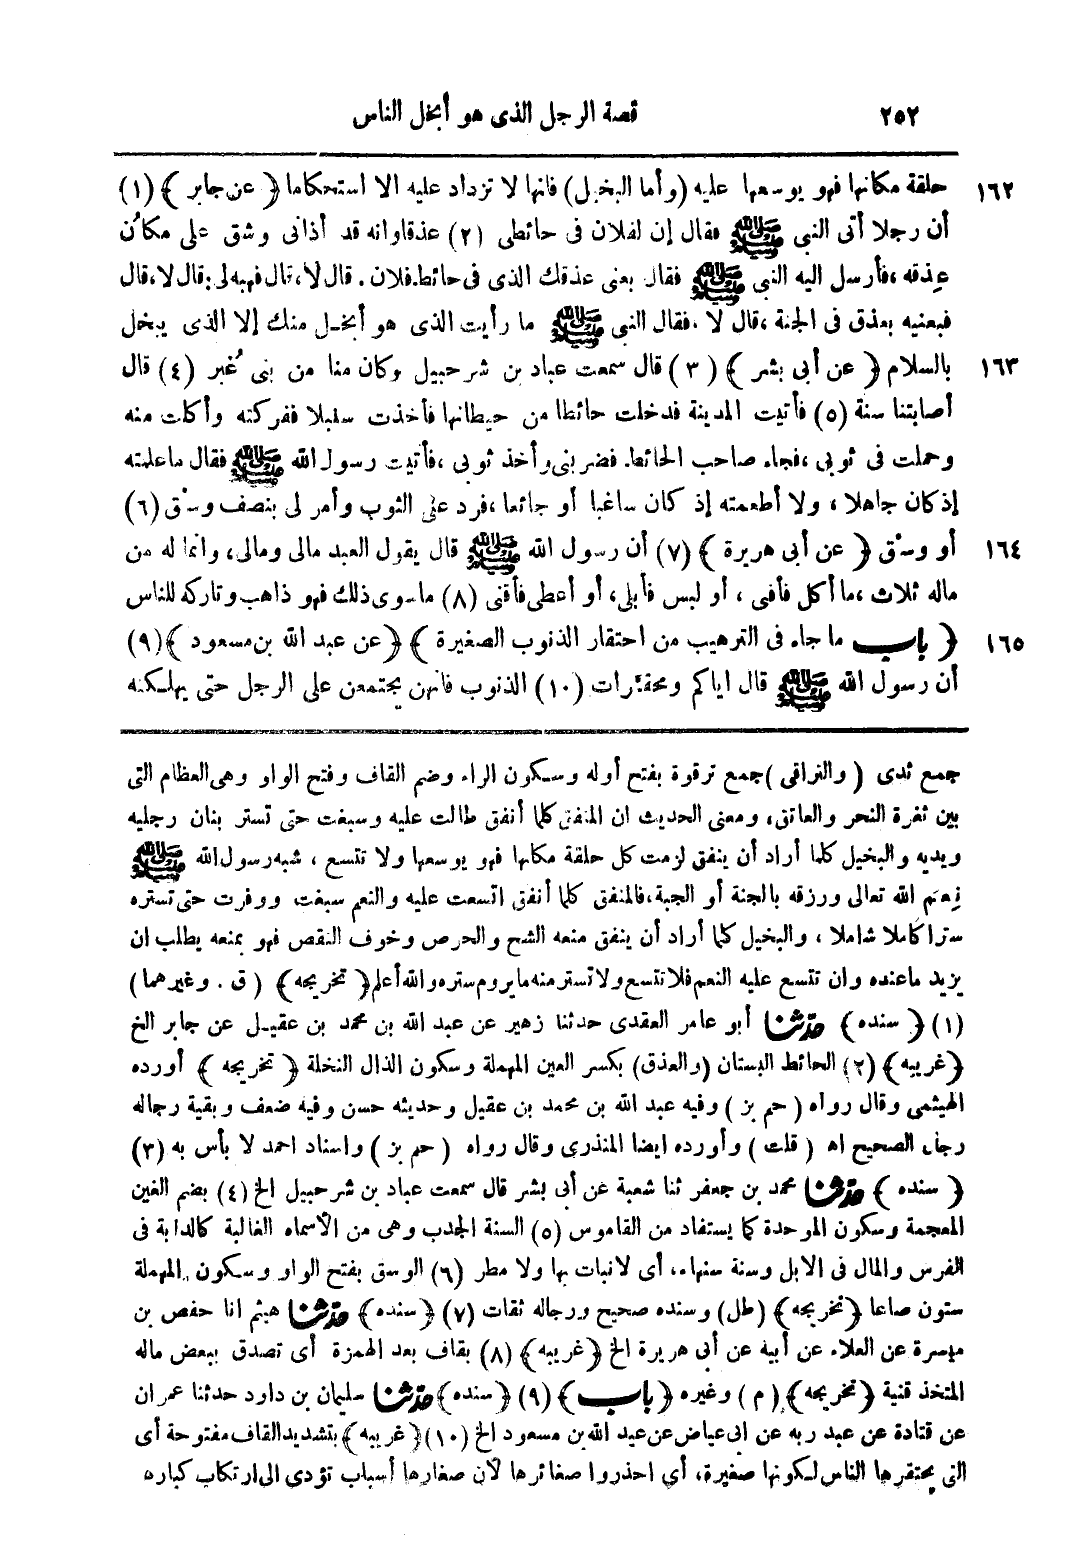 ٢٥٢ قصة الرجل الذى هو أبخل الناس
١٦٢ حلقة مكانها فهو يوسعها عليه (وأما البخيل) فانها لا تزداد عليه الا استحكاما ﴿ عن جابر ﴾ (١)
أن رجلا أتى النبى ﷺ فقال إن لفلان فى حائطى (٢) عذقا وانه قد أذانى وشق على مكان
عذقه ،فأرسل اليه النبى ﷺ فقال بعنى عذقك الذى فى حائط فلان . قال لا،قال فهبه لى،قال لا،قال
فبعنيه بعذق فى الجنة ،قال لا ،فقال النبى ﷺ ما رأيت الذى هو أبخل منك إلا الذى يبخل
١٦٣ بالسلام ﴿ عن أبى بشر ﴾ (٣) قال سمعت عباد بن شرحبيل وكان منا من بنى غُبر (٤) قال
أصابتنا سنة (٥) فأتيت المدينة فدخلت حائطا من حيطانها فأخذت سنبلا ففركته وأكلت منه
وحملت فى ثوبى ،فجاء صاحب الحائط فضربنى وأخذ ثوبى ،فأتيت رسول الله ﷺ فقال ما علمته
إذ كان جاهلا ، ولا أطعمته إذ كان ساغبا أو جائعا ،فرد على الثوب وأمر لى بنصف وسْق (٦)
١٦٤ أو وسْق ﴿ عن أبى هريرة ﴾ (٧) أن رسول الله ﷺ قال يقول العبد مالى ومالى، وانما له من
ماله ثلاث ،ما أكل فأفنى ، أو لبس فأبلى، أو أعطى فأقنى (٨) ما سوى ذلك فهو ذاهب وتاركه للناس
١٦٥ ﴿ باب ما جاء فى الترهيب من احتقار الذنوب الصغيرة ﴾ ﴿ عن عبد الله بن مسعود ﴾ (٩)
أن رسول الله ﷺ قال اياكم ومحقَّرات (١٠) الذنوب فانهن يجتمعن على الرجل حتى يهلكنه
جمع ثدى ( والتراقى ) جمع ترقوة بفتح أوله وسكون الراء وضم القاف وفتح الواو وهى العظام التى
بين ثغرة النحر والعاتق، ومعنى الحديث ان المنفق كلما أنفق طالت عليه وسبغت حتى تستر بنان رجليه
ويديه والبخيل كلما أراد أن ينفق لزمت كل حلقة مكانها فهو يوسعها ولا تتسع ، شبه رسول الله ﷺ
نِعَم الله تعالى ورزقه بالجنة أو الجبة،فالمنفق كلما أنفق اتسعت عليه والنعم سبغت ووفرت حتى تستره
سترا كاملا شاملا ، والبخيل كلما أراد أن ينفق منعه الشح والحرص وخوف النقص فهو بمنعه يطلب ان
يزيد ما عنده وان تتسع عليه النعم فلا تتسع ولا تستر منه ما يروم ستره والله أعلم ﴿ تخريجه ﴾ (ق . وغيرهما)
(١) ﴿ سنده ﴾ حدثنا أبو عامر العقدى حدثنا زهير عن عبد الله بن محمد بن عقيل عن جابر الخ
﴿غريبه﴾ (٢) الحائط البستان (والعذق) بكسر العين المهملة وسكون الذال النخلة ﴿ تخريجه ﴾ أورده
الهيثمى وقال رواه ( حم بز ) وفيه عبد الله بن محمد بن عقيل وحديثه حسن وفيه ضعف وبقية رجاله
رجال الصحيح اه ( قلت ) وأورده ايضا المنذرى وقال رواه ( حم بز ) واسناد احمد لا بأس به (٣)
﴿ سنده ﴾ حدثنا محمد بن جعفر ثنا شعبة عن أبى بشر قال سمعت عباد بن شرحبيل الخ (٤) بضم الغين
المعجمة وسكون الموحدة كما يستفاد من القاموس (٥) السنة الجدب وهى من الأسماء الغالبة كالدابة فى
الفرس والمال فى الابل وسنة سنهاء، أى لا نبات بها ولا مطر (٦) الوسق بفتح الواو وسكون المهملة
ستون صاعا ﴿تخريجه﴾ (طل) وسنده صحيح ورجاله ثقات (٧) ﴿سنده﴾ حدثنا هيثم انا حفص بن
ميسرة عن العلاء عن أبيه عن أبى هريرة الخ ﴿غريبه﴾ (٨) بقاف بعد الهمزة أى تصدق ببعض ماله
المتخذ قنية ﴿تخريجه﴾ ( م ) وغيره ﴿باب﴾ (٩) ﴿سنده﴾ حدثنا سليمان بن داود حدثنا عمران
عن قتادة عن عبد ربه عن ابى عياض عن عبد الله بن مسعود الخ (١٠) ﴿غريبه﴾ بتشديد القاف مفتوحة أى
التى يحتقرها الناس لكونها صغيرة، أي احذروا صغائرها لأن صغارها أسباب تؤدى الى ارتكاب كبارها